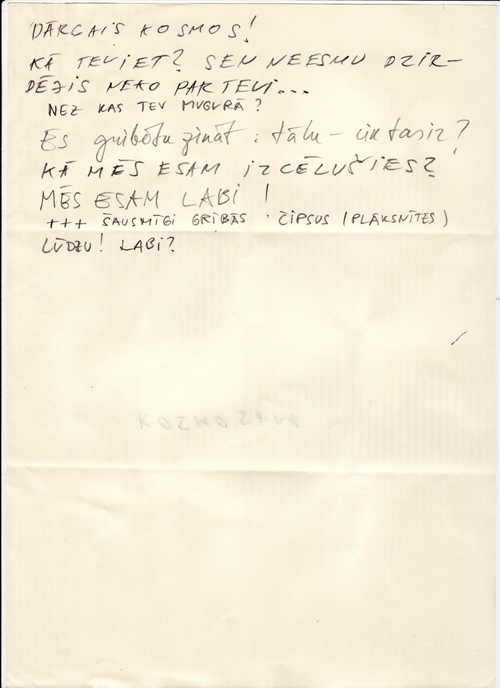 DĀRGAIS KOSMOS!
KĀ TEV IET? SEN NEESMU DZIR-
DĒJIS NEKO PAR TEVI...
NEZ KAS TEV MUGURĀ?
Es gribētu zināt: tālu - cik tas ir?
KĀ MĒS ESAM IZCĒLUŠIES?
MĒS ESAM LABI!
+++ ŠAUSMĪGI GRIBAS ČIPSUS (PLĀKSNĪTES)
LŪDZU! LABI?